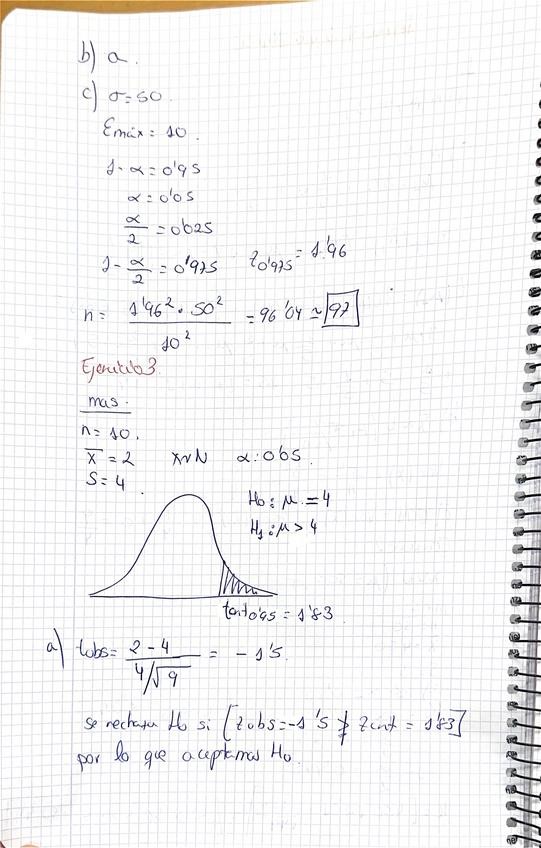 b) a.
c) σ=50.
Emáx = 10.
1-α = 0'95
α = 0'05
α/2 = 0'025
1-α/2 = 0'975 z0'975 = 1'96
n = 1'96² · 50² / 10² = 96'04 ≃ 97
Ejercicio 3
mas.
n = 10.
x̄ = 2 X~N α: 0'05.
S = 4.
H0: μ = 4
H1: μ > 4
tcrit 0'95 = 1'83
a) tobs = 2-4 / 4/√9 = -1'5.
se rechaza H0 si [zobs = -1'5 ≯ zcrit = 1'83]
por lo que aceptamos H0.